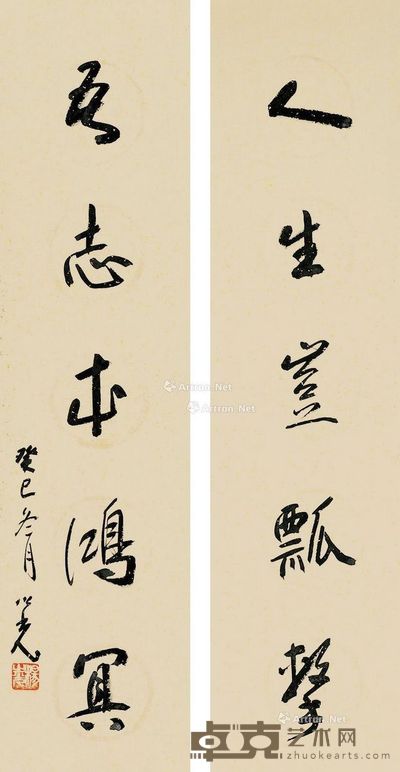 人生豈瓢繫
吾志本鴻冥
癸巳冬月
Artron.Net
Artron.Net
Artron.Net
卓克艺术网
zhuokearts.com